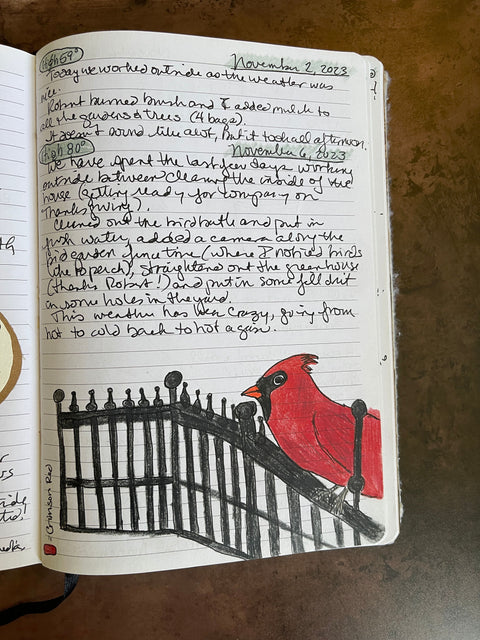 High 59°
November 2, 2023
Today we worked outside as the weather was
nice.
Robert burned brush and I added mulch to
all the gardens & trees (4 bags).
It doesn't sound like a lot, but it took all afternoon.
High 80°
November 6, 2023
We have spent the last few days working
outside between cleaning the inside of the
house (getting ready for company on
Thanksgiving).
Cleaned out the birdbath and put in
fresh water, added a camera along the
garden fence line (where I noticed birds
like to perch), straightened out the greenhouse
(thanks Robert!) and put in some fill dirt
in some holes in the yard.
This weather has been crazy, going from
hot to cold back to hot again.
Crimson Red